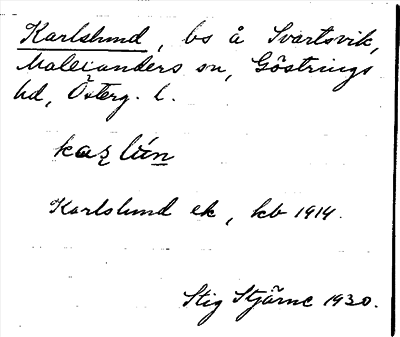 Karlslund, bs å Svartsvik,
Malexanders sn, Göstrings
hd, Österg. l.
kaʀlún
Karlslund ek, kb 1914.
Stig Stjärne 1930.